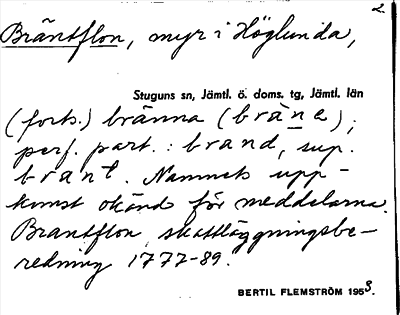 2.
Bräntflon, myr i Höglunda,
Stuguns sn, Jämtl. ö. doms. tg, Jämtl. län
(forts.) bränna (bräne),
perf. part.: brand, sup.
brant. Namnets upp-
komst okänd för meddelarna.
Brantflon, skattläggningsbe-
redning 1777-89.
BERTIL FLEMSTRÖM 1953.